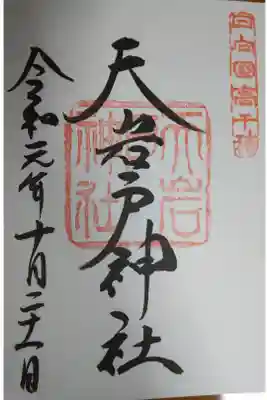 日向國高千穂
天岩戸神社
令和元年十月二十一日